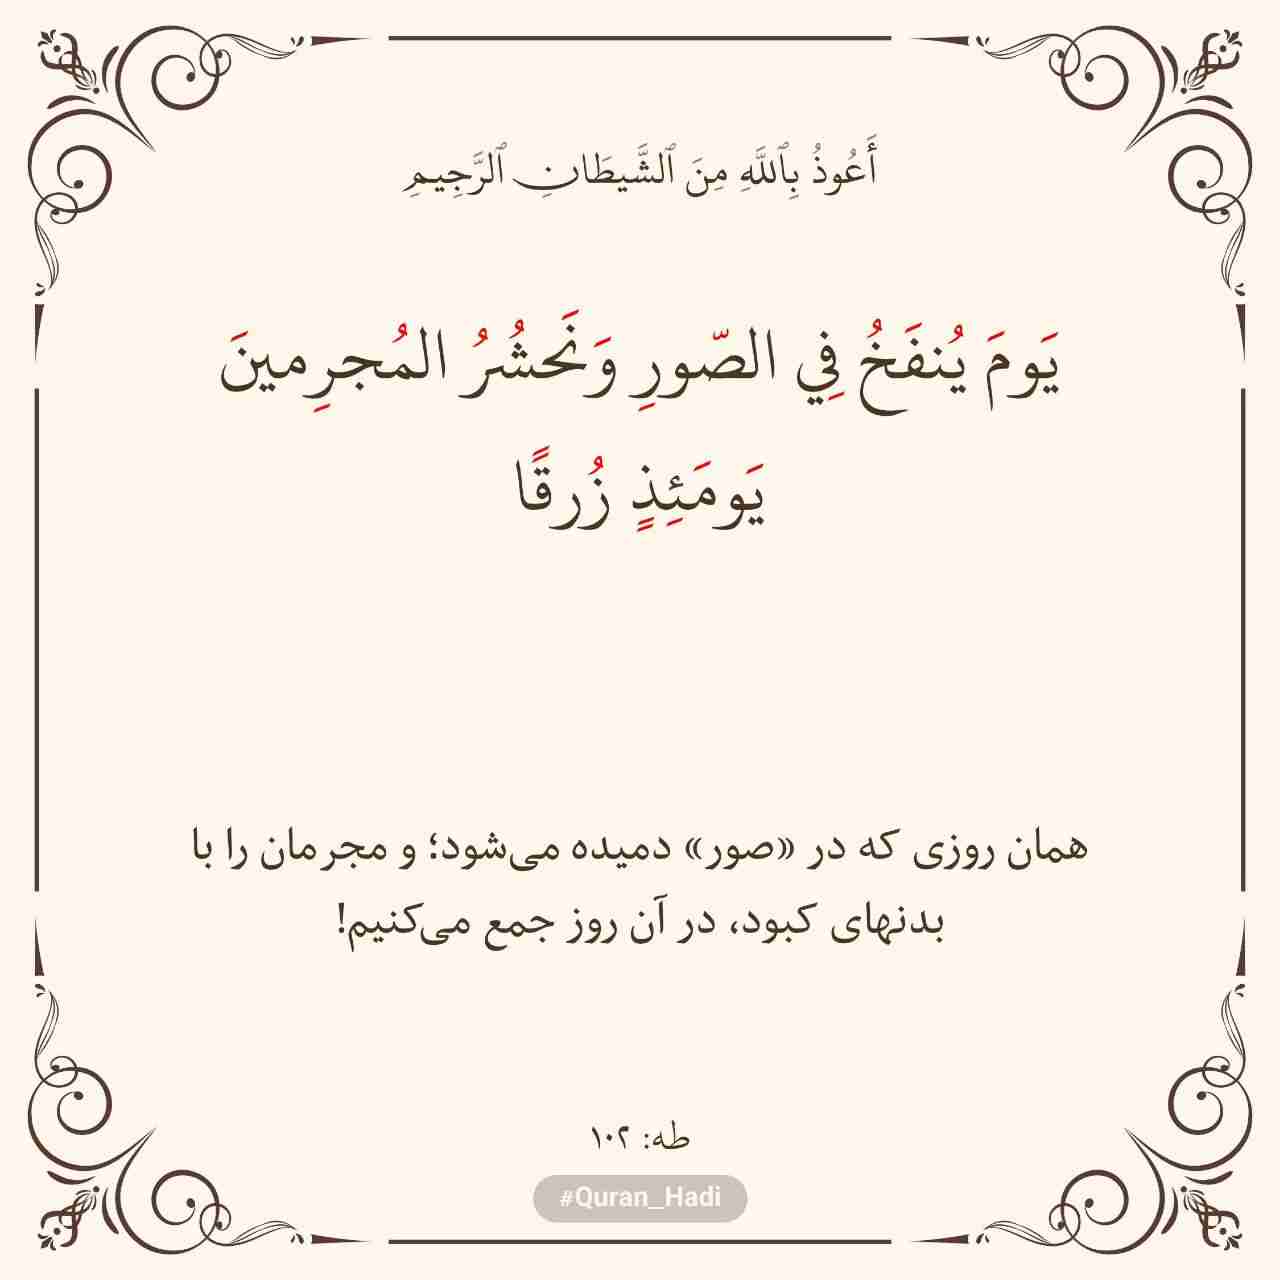 أَعُوذُ بِٱللَّهِ مِنَ ٱلشَّيطَانِ ٱلرَّجِيمِ
يَومَ يُنفَخُ فِي الصّورِ وَنَحشُرُ المُجرِمينَ
يَومَئِذٍ زُرقًا
همان روزی که در «صور» دمیده می‌شود؛ و مجرمان را با
بدنهای کبود، در آن روز جمع می‌کنیم!
طه: ۱۰۲
#Quran_Hadi